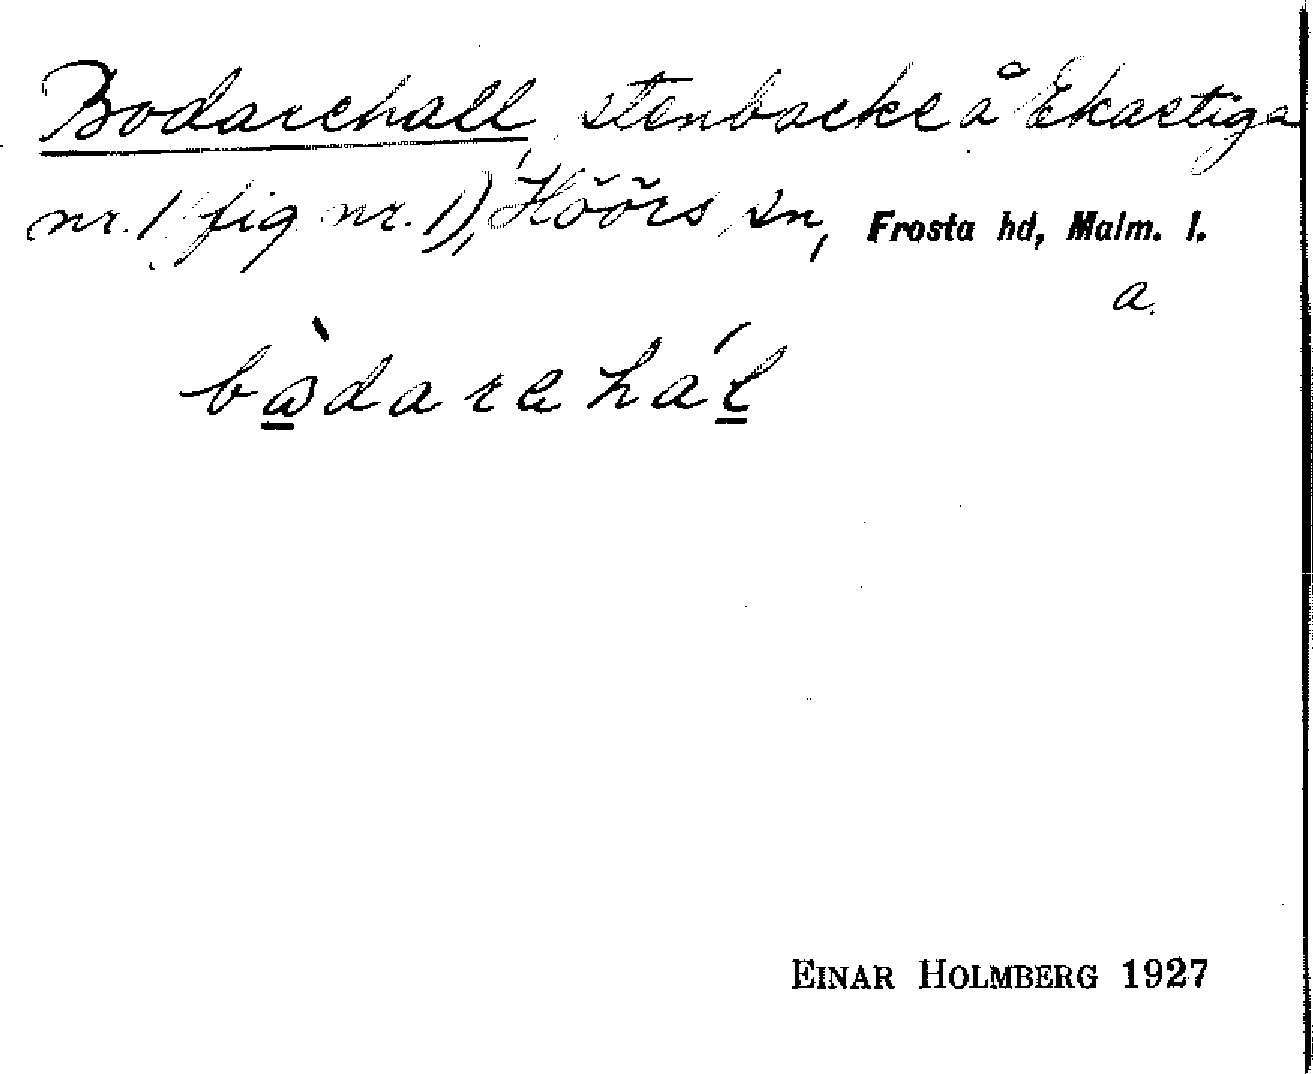 Bodarehall, stenbacke å Ekastiga
nr. 1 (fig nr. 1), Höörs sn, Frosta hd, Malm. l.
a.
bàdarehál
EINAR HOLMBERG 1927